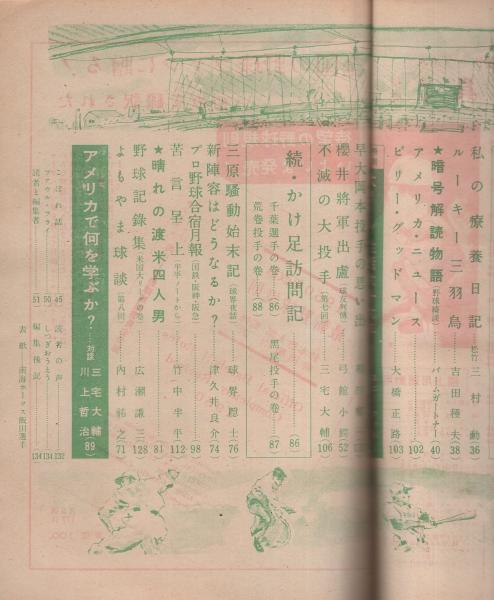 私の療養日記 (松竹) 三村勲(36)
ルーキー三羽烏 吉田種夫(38)
★暗号解読物語 (野球綺談) バーム・ガートナー(40)
アメリカ・ニュース(102)
ビリー・グッドマン 大橋正路(103)
早大岡本投手の思い出
櫻井將軍出盧 (球友列傳) 弓館小鰐(52)
不滅の大投手 (第七回) 三宅大輔(106)
続・かけ足訪問記(86)
千葉選手の巻(86)
黒尾投手の巻(87)
荒巻投手の巻(88)
三原騒動始末記 (球界夜話) 球界隠士(76)
新陣容はどうなるか? 津久井良介(74)
プロ野球合宿月報 (国鉄・阪神・阪急)(98)
苦言呈上 (半平ノートから) 竹中半平(112)
★晴れの渡米四人男(81)
野球記録集 (米国大リーグの巻) 広瀬謙三(128)
よもやま球談 (第八回) 内村祐之(71)
アメリカで何を学ぶか? 対談 三宅大輔 川上哲治(89)
こぼれ話(45)
ファウル・フライ(50)
読者と編集者(51)
読者の声(132)
しつぎおうとう(134)
編集後記(134)
表紙 南海ホークス飯田選手